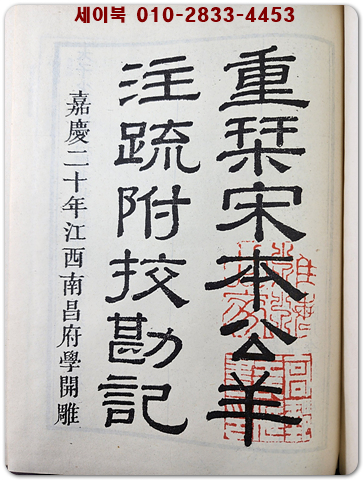 세이북 010-2833-4453
重栞宋本公羊
注疏附挍勘記
嘉慶二十年江西南昌府學開雕